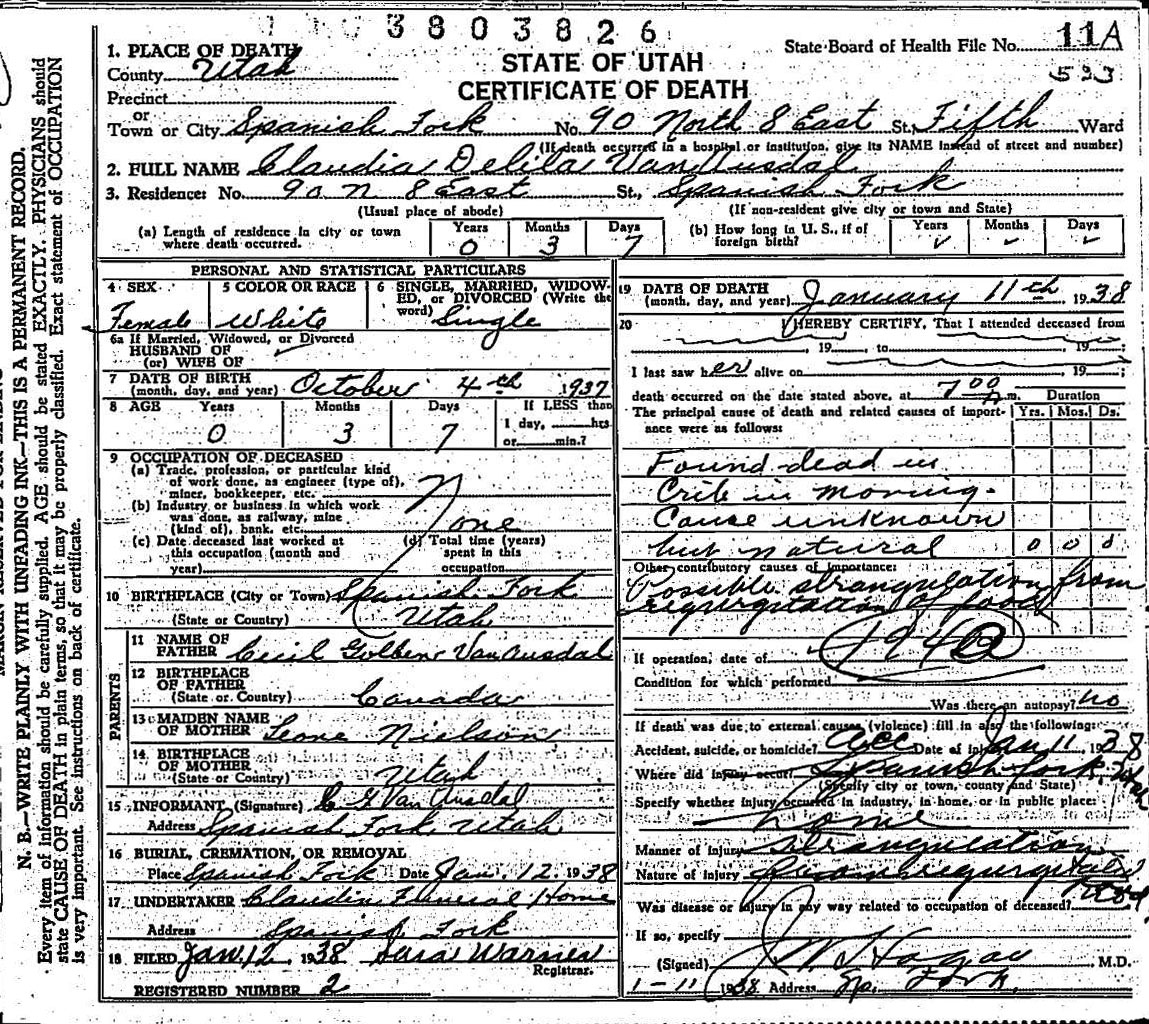 3803826
1. PLACE OF DEATH
County Utah
STATE OF UTAH
CERTIFICATE OF DEATH
State Board of Health File No. 11A
533
Precinct
or
Town or City Spanish Fork No. 90 North 8 East St., Fifth Ward
(If death occurred in a hospital or institution, give its NAME instead of street and number)
2. FULL NAME Claudia Delila VanAusdal
3. Residence: No. 90 N 8 East St., Spanish Fork
(Usual place of abode) (If non-resident give city or town and State)
(a) Length of residence in city or town where death occurred. Years 0 Months 3 Days 7
(b) How long in U. S., if of foreign birth? Years ✓ Months ✓ Days ✓
PERSONAL AND STATISTICAL PARTICULARS
4 SEX Female
5 COLOR OR RACE White
6 SINGLE, MARRIED, WIDOW-
ED, or DIVORCED (Write the
word) Single
6a If Married, Widowed, or Divorced
HUSBAND OF
(or) WIFE OF
7 DATE OF BIRTH
(month, day, and year) October 4th 1937
8 AGE Years Months Days If LESS than
0 3 7 1 day, hrs
or min.?
9 OCCUPATION OF DECEASED
(a) Trade, profession, or particular kind
of work done, as engineer (type of),
miner, bookkeeper, etc.
(b) Industry or business in which work
was done, as railway, mine
(kind of), bank, etc. None
(c) Date deceased last worked at
this occupation (month and
year)
(d) Total time (years)
spent in this
occupation
10 BIRTHPLACE (City or Town) Spanish Fork
(State or Country) Utah
PARENTS
11 NAME OF
FATHER Cecil Golben VanAusdal
12 BIRTHPLACE
OF FATHER
(State or Country) Canada
13 MAIDEN NAME
OF MOTHER Leone Nielson
14 BIRTHPLACE
OF MOTHER
(State or Country) Utah
15 INFORMANT (Signature) C G Van Ausdal
Address Spanish Fork Utah
16 BURIAL, CREMATION, OR REMOVAL
Place Spanish Fork Date Jan. 12. 1938
17 UNDERTAKER Claudin Funeral Home
Address Spanish Fork
18 FILED Jan. 12 1938 Sara Warner
Registrar.
REGISTERED NUMBER 2
19 DATE OF DEATH
(month, day, and year) January 11th 1938
20 I HEREBY CERTIFY, That I attended deceased from
, 19 to 19 ;
I last saw her alive on 19 ;
death occurred on the date stated above, at 7 00 A m.
Duration
The principal cause of death and related causes of import-
ance were as follows:
Yrs. Mos. Ds.
Found dead in
Crib in morning.
Cause unknown
but natural 0 0 0
Other contributory causes of importance:
Possible strangulation from
regurgitation of food
194
If operation, date of
Condition for which performed
Was there an autopsy? no
If death was due to external causes (violence) fill in also the following:
Accident, suicide, or homicide? acc Date of inj Jan 11, 1938
Where did injury occur? Spanish Fork, Utah
(Specify city or town, county and State)
Specify whether injury occurred in industry, in home, or in public place:
home
Manner of injury strangulation
Nature of injury from regurgitated food.
Was disease or injury in any way related to occupation of deceased?
If so, specify
(Signed) J W Hagan M.D.
1-11 1938 Address Sp. Fork.
N. B.—WRITE PLAINLY WITH UNFADING INK—THIS IS A PERMANENT RECORD.
Every item of information should be carefully supplied. AGE should be stated EXACTLY. PHYSICIANS should
state CAUSE OF DEATH in plain terms, so that it may be properly classified. Exact statement of OCCUPATION
is very important. See instructions on back of certificate.